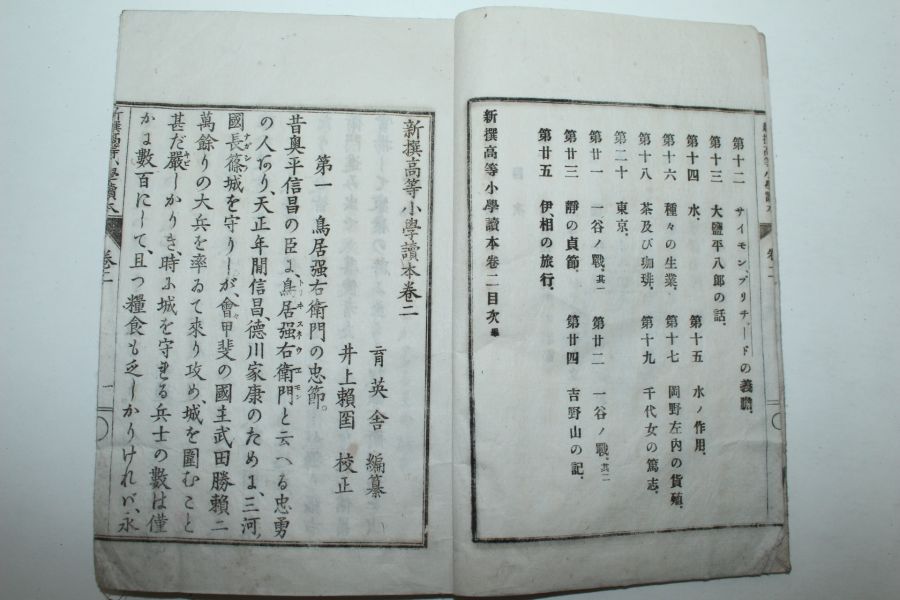 第十二 サイモン、プリチードの義膽.
第十三 大鹽平八郎の話.
第十四 水、 第十五 水ノ作用.
第十六 種々の生業. 第十七 岡野左內の貨殖.
第十八 茶及び珈琲. 第十九 千代女の篤志.
第二十 東京.
第廿一 一谷ノ戰.其一 第廿二 一谷ノ戰.其二
第廿三 靜の貞節. 第廿四 吉野山の記.
第廿五 伊相の旅行.
新撰高等小學讀本卷二目次 畢
新撰高等小學讀本卷二
育英舍 編纂
井上賴囶 校正
第一 鳥居强右衛門の忠節。
昔奥平信昌の臣に、鳥居强右衛門と云へる忠勇
トリヰ スネウヱモン
の人あり、天正年間信昌、德川家康のために、三河
國長篠城を守りしが、會甲斐の國主武田勝賴二
ナガシノ
萬餘りの大兵を率ゐて來り攻め、城を圍むこと
甚だ嚴しかりき、時に城を守れる兵士の數は僅
キビ
かに數百にして、且つ糧食も乏しかりければ、永
新撰高等小學讀本 卷二 一